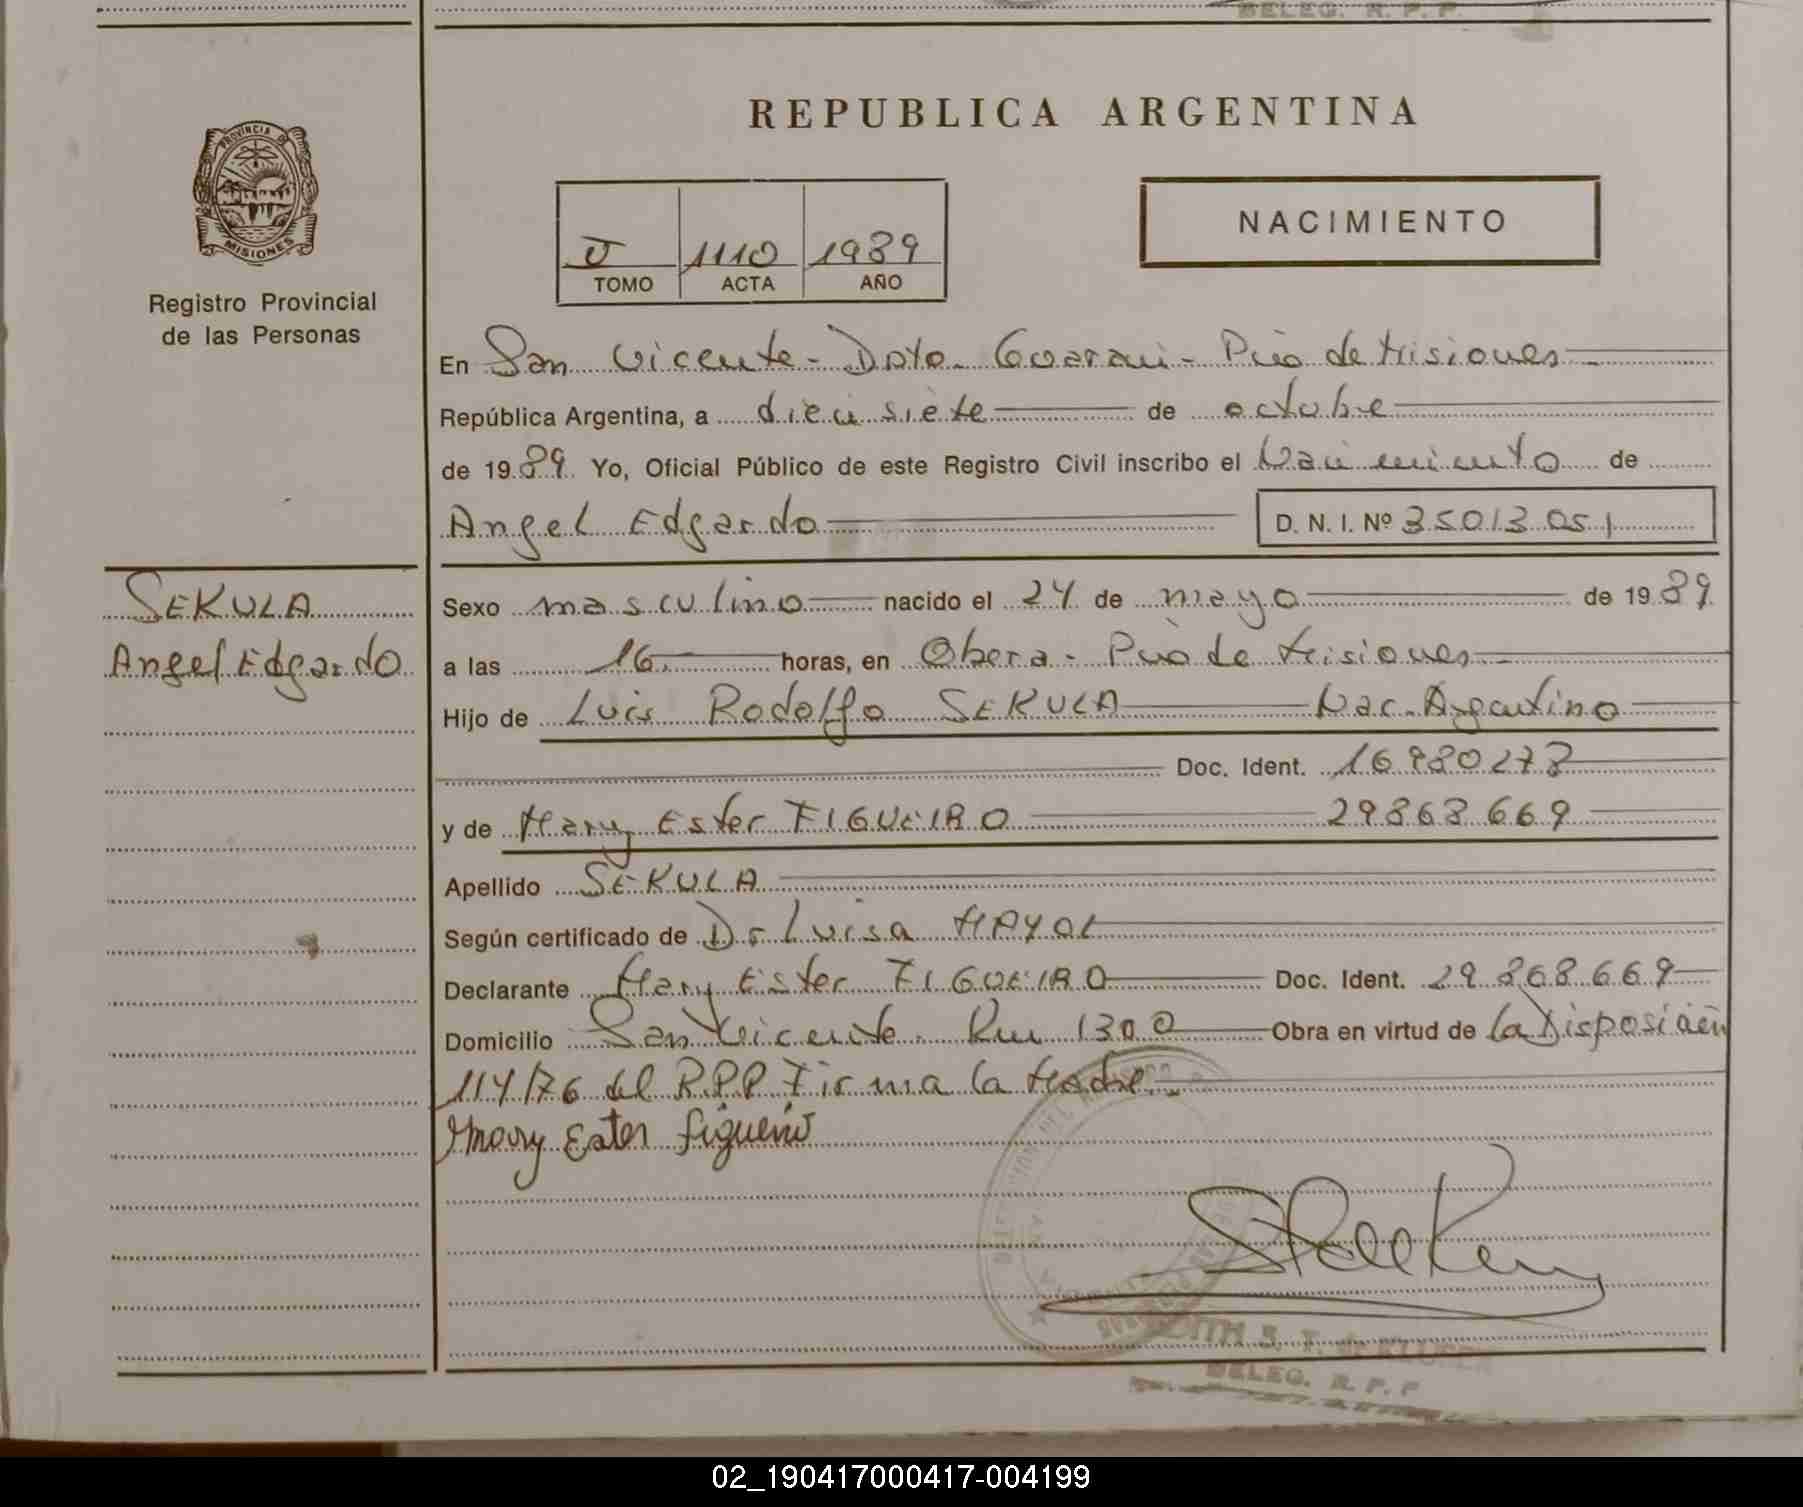 DELEG. R. P. P.
REPUBLICA ARGENTINA
PROVINCIA DE
MISIONES
Registro Provincial
de las Personas
NACIMIENTO
V 1110 1989
TOMO ACTA AÑO
En San Vicente - Dpto. Guarani - Pcia de Misiones
República Argentina, a diecisiete de octubre
de 1989. Yo, Oficial Público de este Registro Civil inscribo el Nacimiento de
Angel Edgardo D. N. I. Nº 35013051
SEKULA
Angel Edgardo
Sexo masculino nacido el 24 de mayo de 1989
a las 16 horas, en Obera - Pcia de Misiones
Hijo de Luis Rodolfo SEKULA Nac. Argentino
Doc. Ident. 16980278
y de Mary Ester FIGUEIRO 29868669
Apellido SEKULA
Según certificado de Dr Luisa MAYOL
Declarante Mary Ester FIGUEIRO Doc. Ident. 29.868.669
Domicilio San Vicente. Km 1300 Obra en virtud de la Disposición
114/76 del R.P.P Firma la Madre.
Mary Ester Figueiro
DITH S. T. de KLUSEN
DELEG. R. P. P
02_190417000417-004199